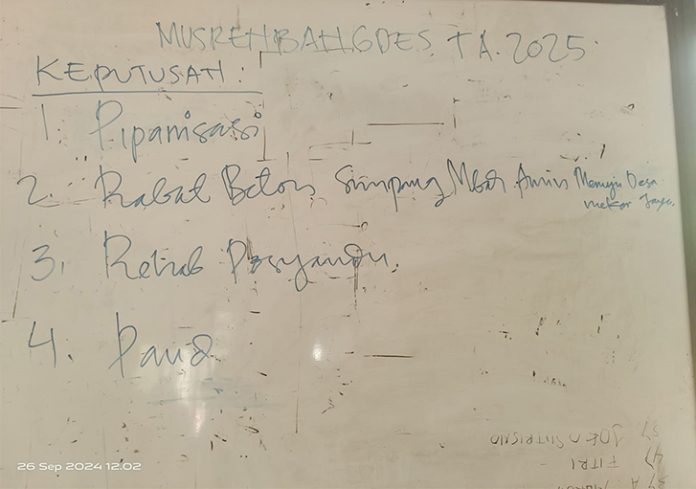 MUSRENBANGDES TA. 2025.
KEPUTUSAN :
1. Pipanisasi
2. Rabat Beton Simpang Mbah Amin Menuju Desa
mekar Jaya.
3. Rehab Posyandu.
4. Paud
37 JOKO SUTRISNO
47 FITRI -
26 Sep 2024 12.02